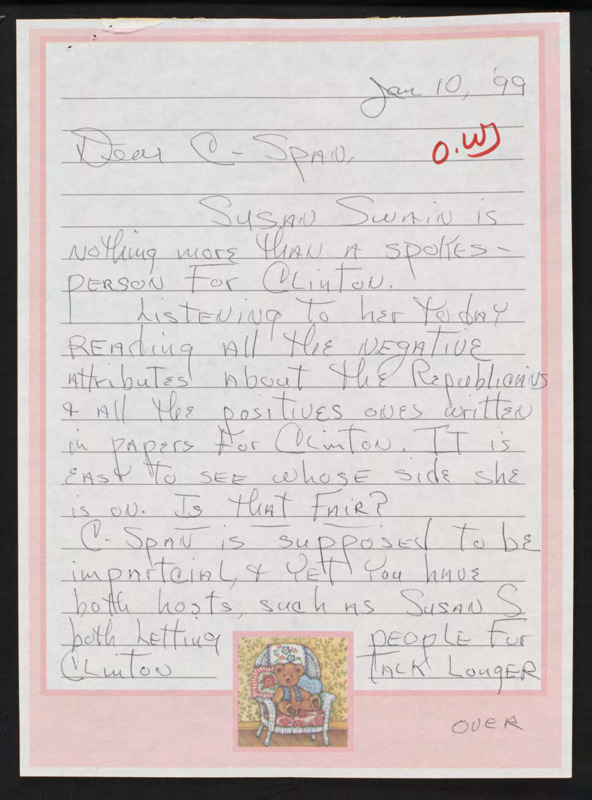 Jan 10, '99
Dear C-Span,
O.W
Susan Swain is
nothing more than a spokes-
person for Clinton.
Listening to her today
reading all the negative
attributes about the Republicans
& all the positives ones written
in papers for Clinton. It is
easy to see whose side she
is on. Is that fair?
C-Span is supposed to be
impartcial, & yett you have
both hosts, such as Susan S
both letting people for
Clinton talk longer
over